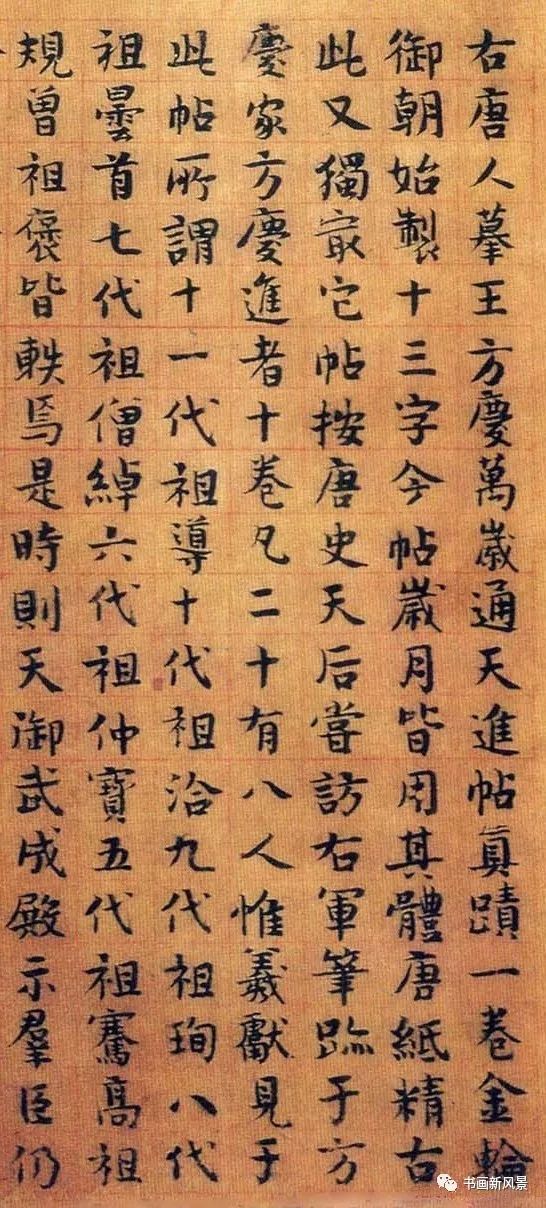 右唐人摹王方慶萬歲通天進帖真蹟一卷金輪
御朝始製十三字今帖歲月皆用其體唐紙精古
此又獨㝡它帖按唐史天后嘗訪右軍筆跡于方
慶家方慶進者十卷凡二十有八人惟羲獻見于
此帖所謂十一代祖導十代祖洽九代祖珣八代
祖曇首七代祖僧綽六代祖仲寶五代祖騫高祖
規曾祖褒皆軼焉是時則天御武成殿示羣臣仍
书画新风景